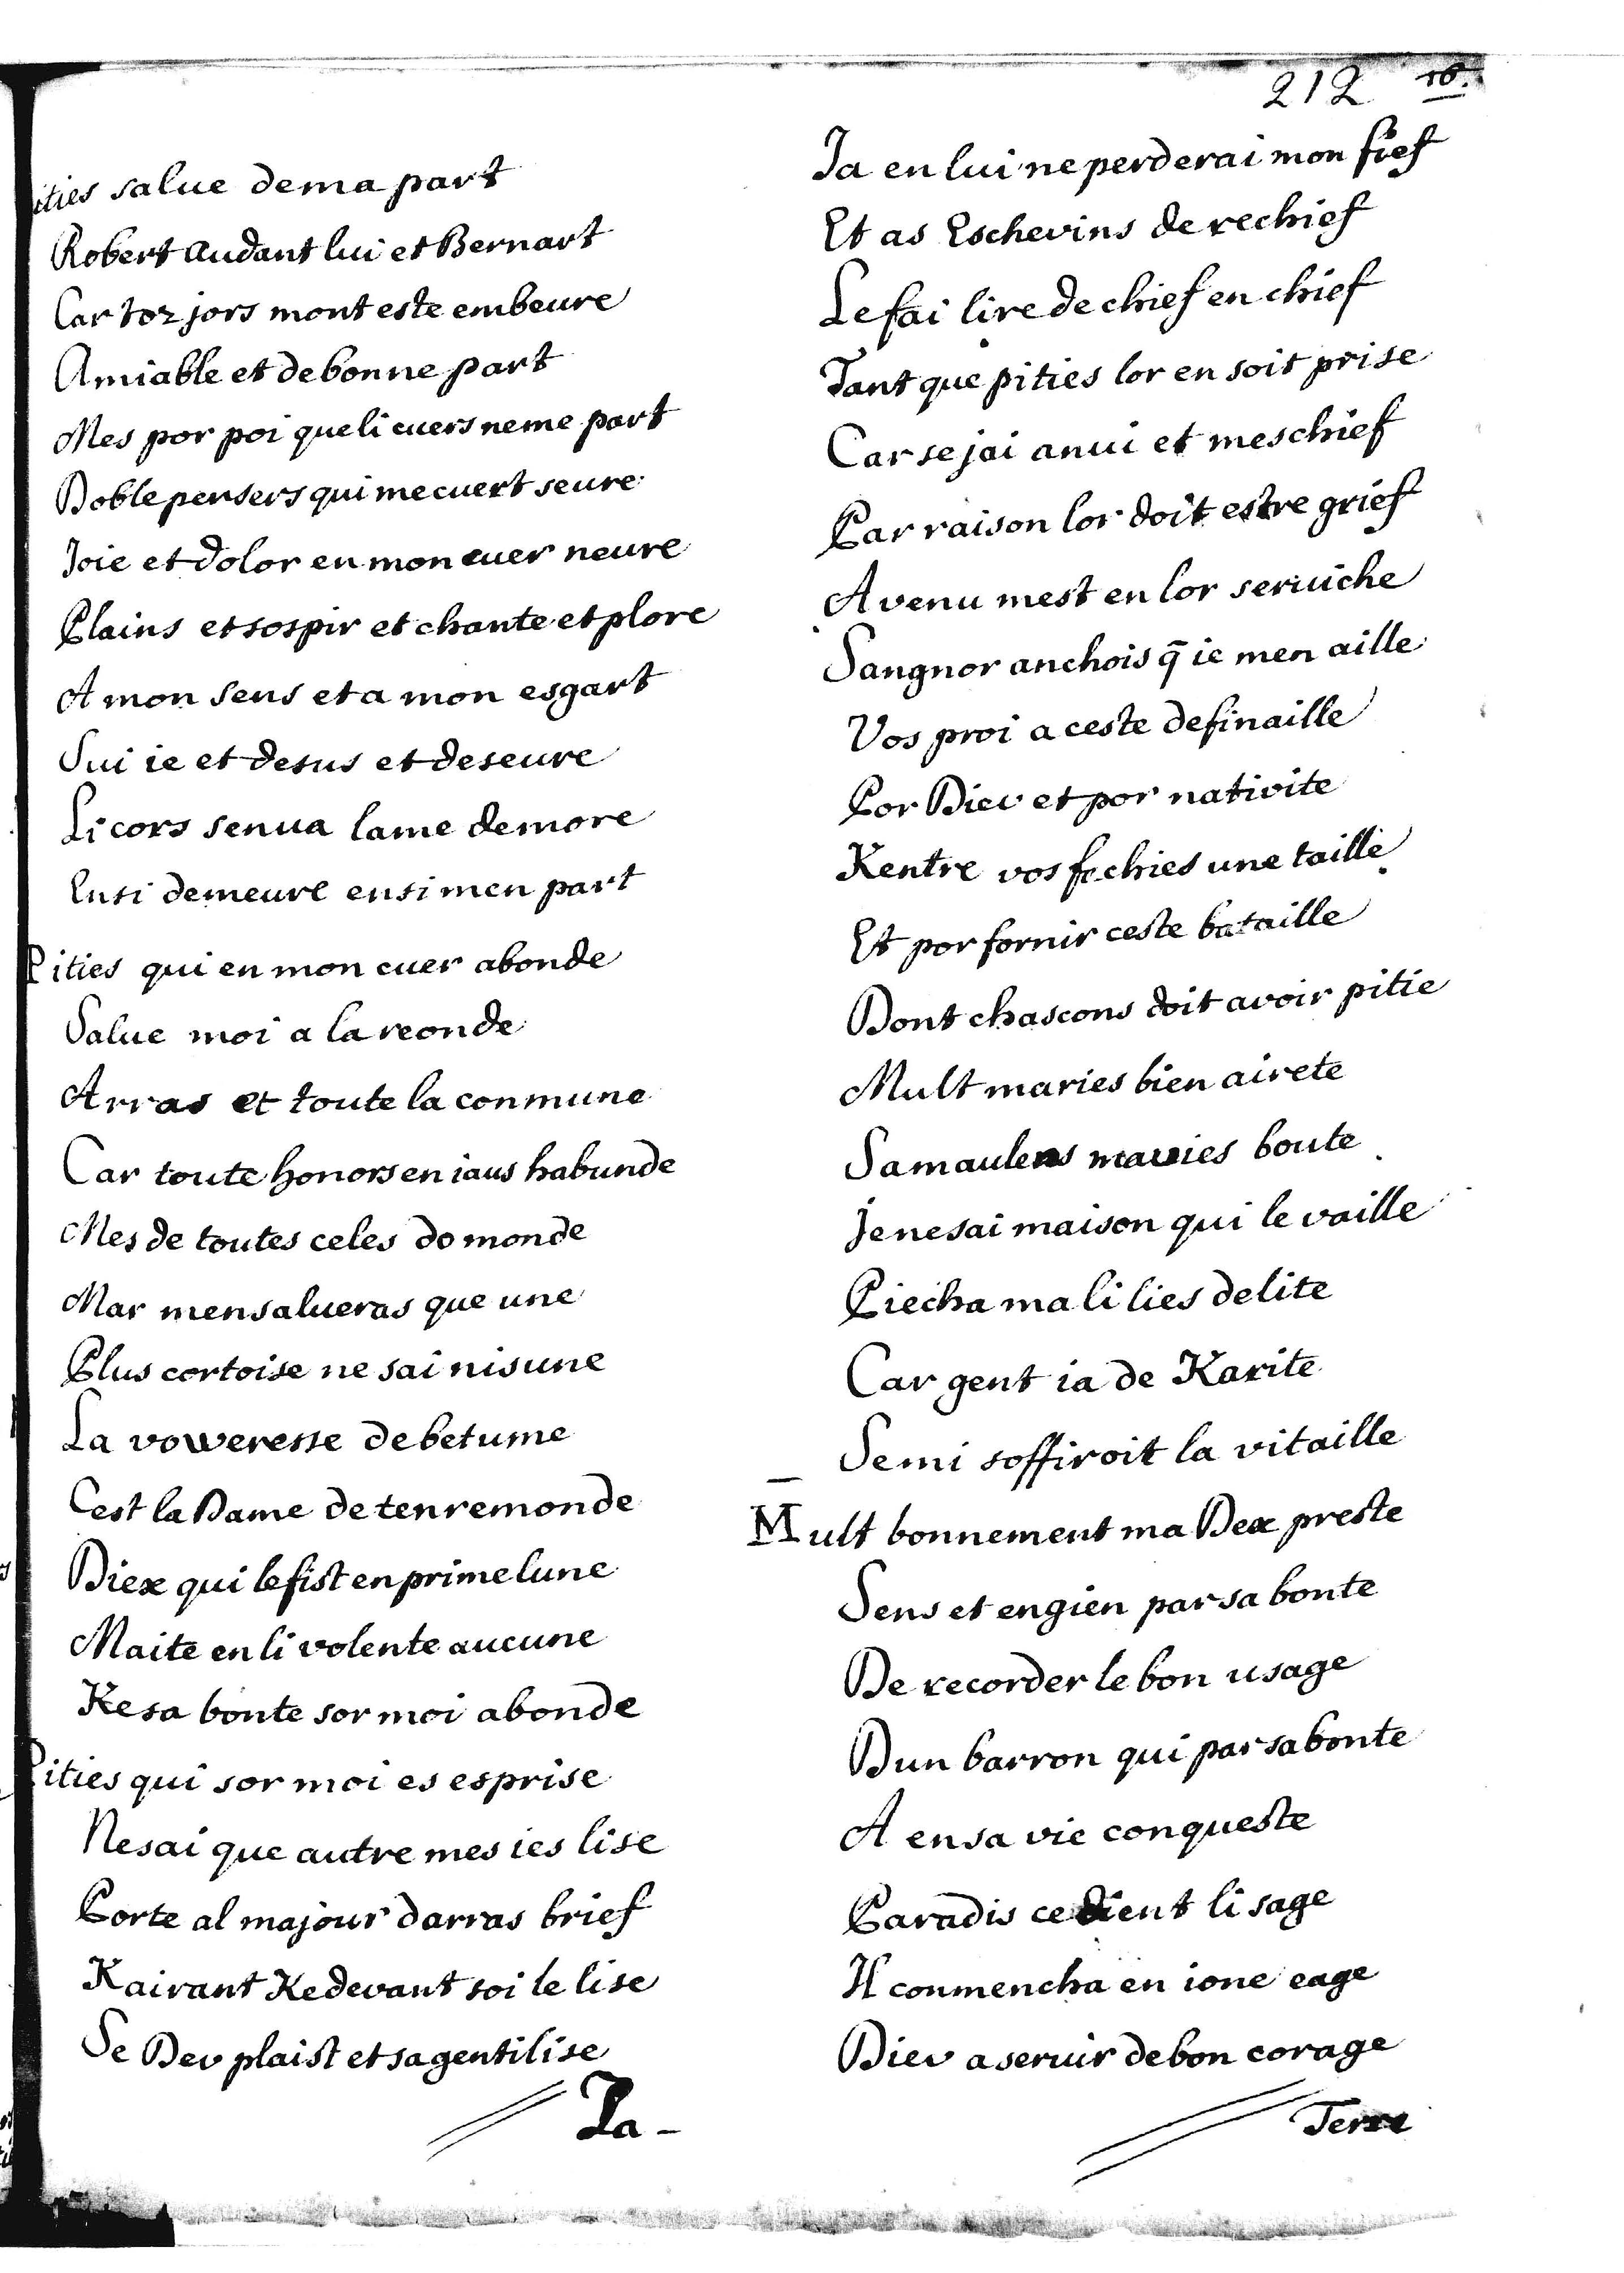 212 16.
ities salue dema part
Robert audant lui et Bernart
Car toz jors mont este embeure
Amiable et debonne part
Mes por poi queli cuers neme part
Doble pensers qui me cuert seure
Joie et dolor en mon cuer neure
Plains et sospir et chante et plore
A mon sens et a mon esgart
Sui ie et desus et deseure
Li cors senua lame demore
Ensi demeure ensi men part
Pities qui en mon cuer abonde
Salue moi a la reonde
Arras et toute la conmune
Car toute honors en iaus habunde
Mes de toutes celes do monde
Mar mensalueras que une
Plus cortoise ne sai nisune
La voweresse debetume
Cest la Dame de tenremonde
Diex qui le fist en prime lune
Maite en li volente aucune
Kesa bonte sor moi abonde
Pities qui sor moi es esprise
Nesai que autre mes ies lise
Porte al majour darras brief
Kairant Kedevant soi le lise
Se Dev plaist et sa gentilise
Ja-
Ja en lui ne perderai mon fief
Et as Eschevins de rechief
Le fai lire de chief en chief
Tant que pities lor en soit prise
Car se jai anui et meschief
Par raison lor doit estre grief
Avenu mest en lor seruiche
Sangnor anchois q̄ ie men aille
Vos proi a ceste definaille
Por Diev et por nativite
Kentre vos fechies une taille
Et por fornir ceste bataille
Dont chascons doit avoir pitie
Mult maries bien airete
Samaulens mauies boute
Jenesai maison qui le vaille
Piecha ma li lies delite
Car gent ia de Karite
Semi soffiroit la vitaille
Mult bonnement ma Dex preste
Sens et engien par sa bonte
De recorder le bon usage
Dun barron qui par sa bonte
A en sa vie conqueste
Paradis ce dient li sage
Il conmencha en ione eage
Diev a seruir debon corage
Terre